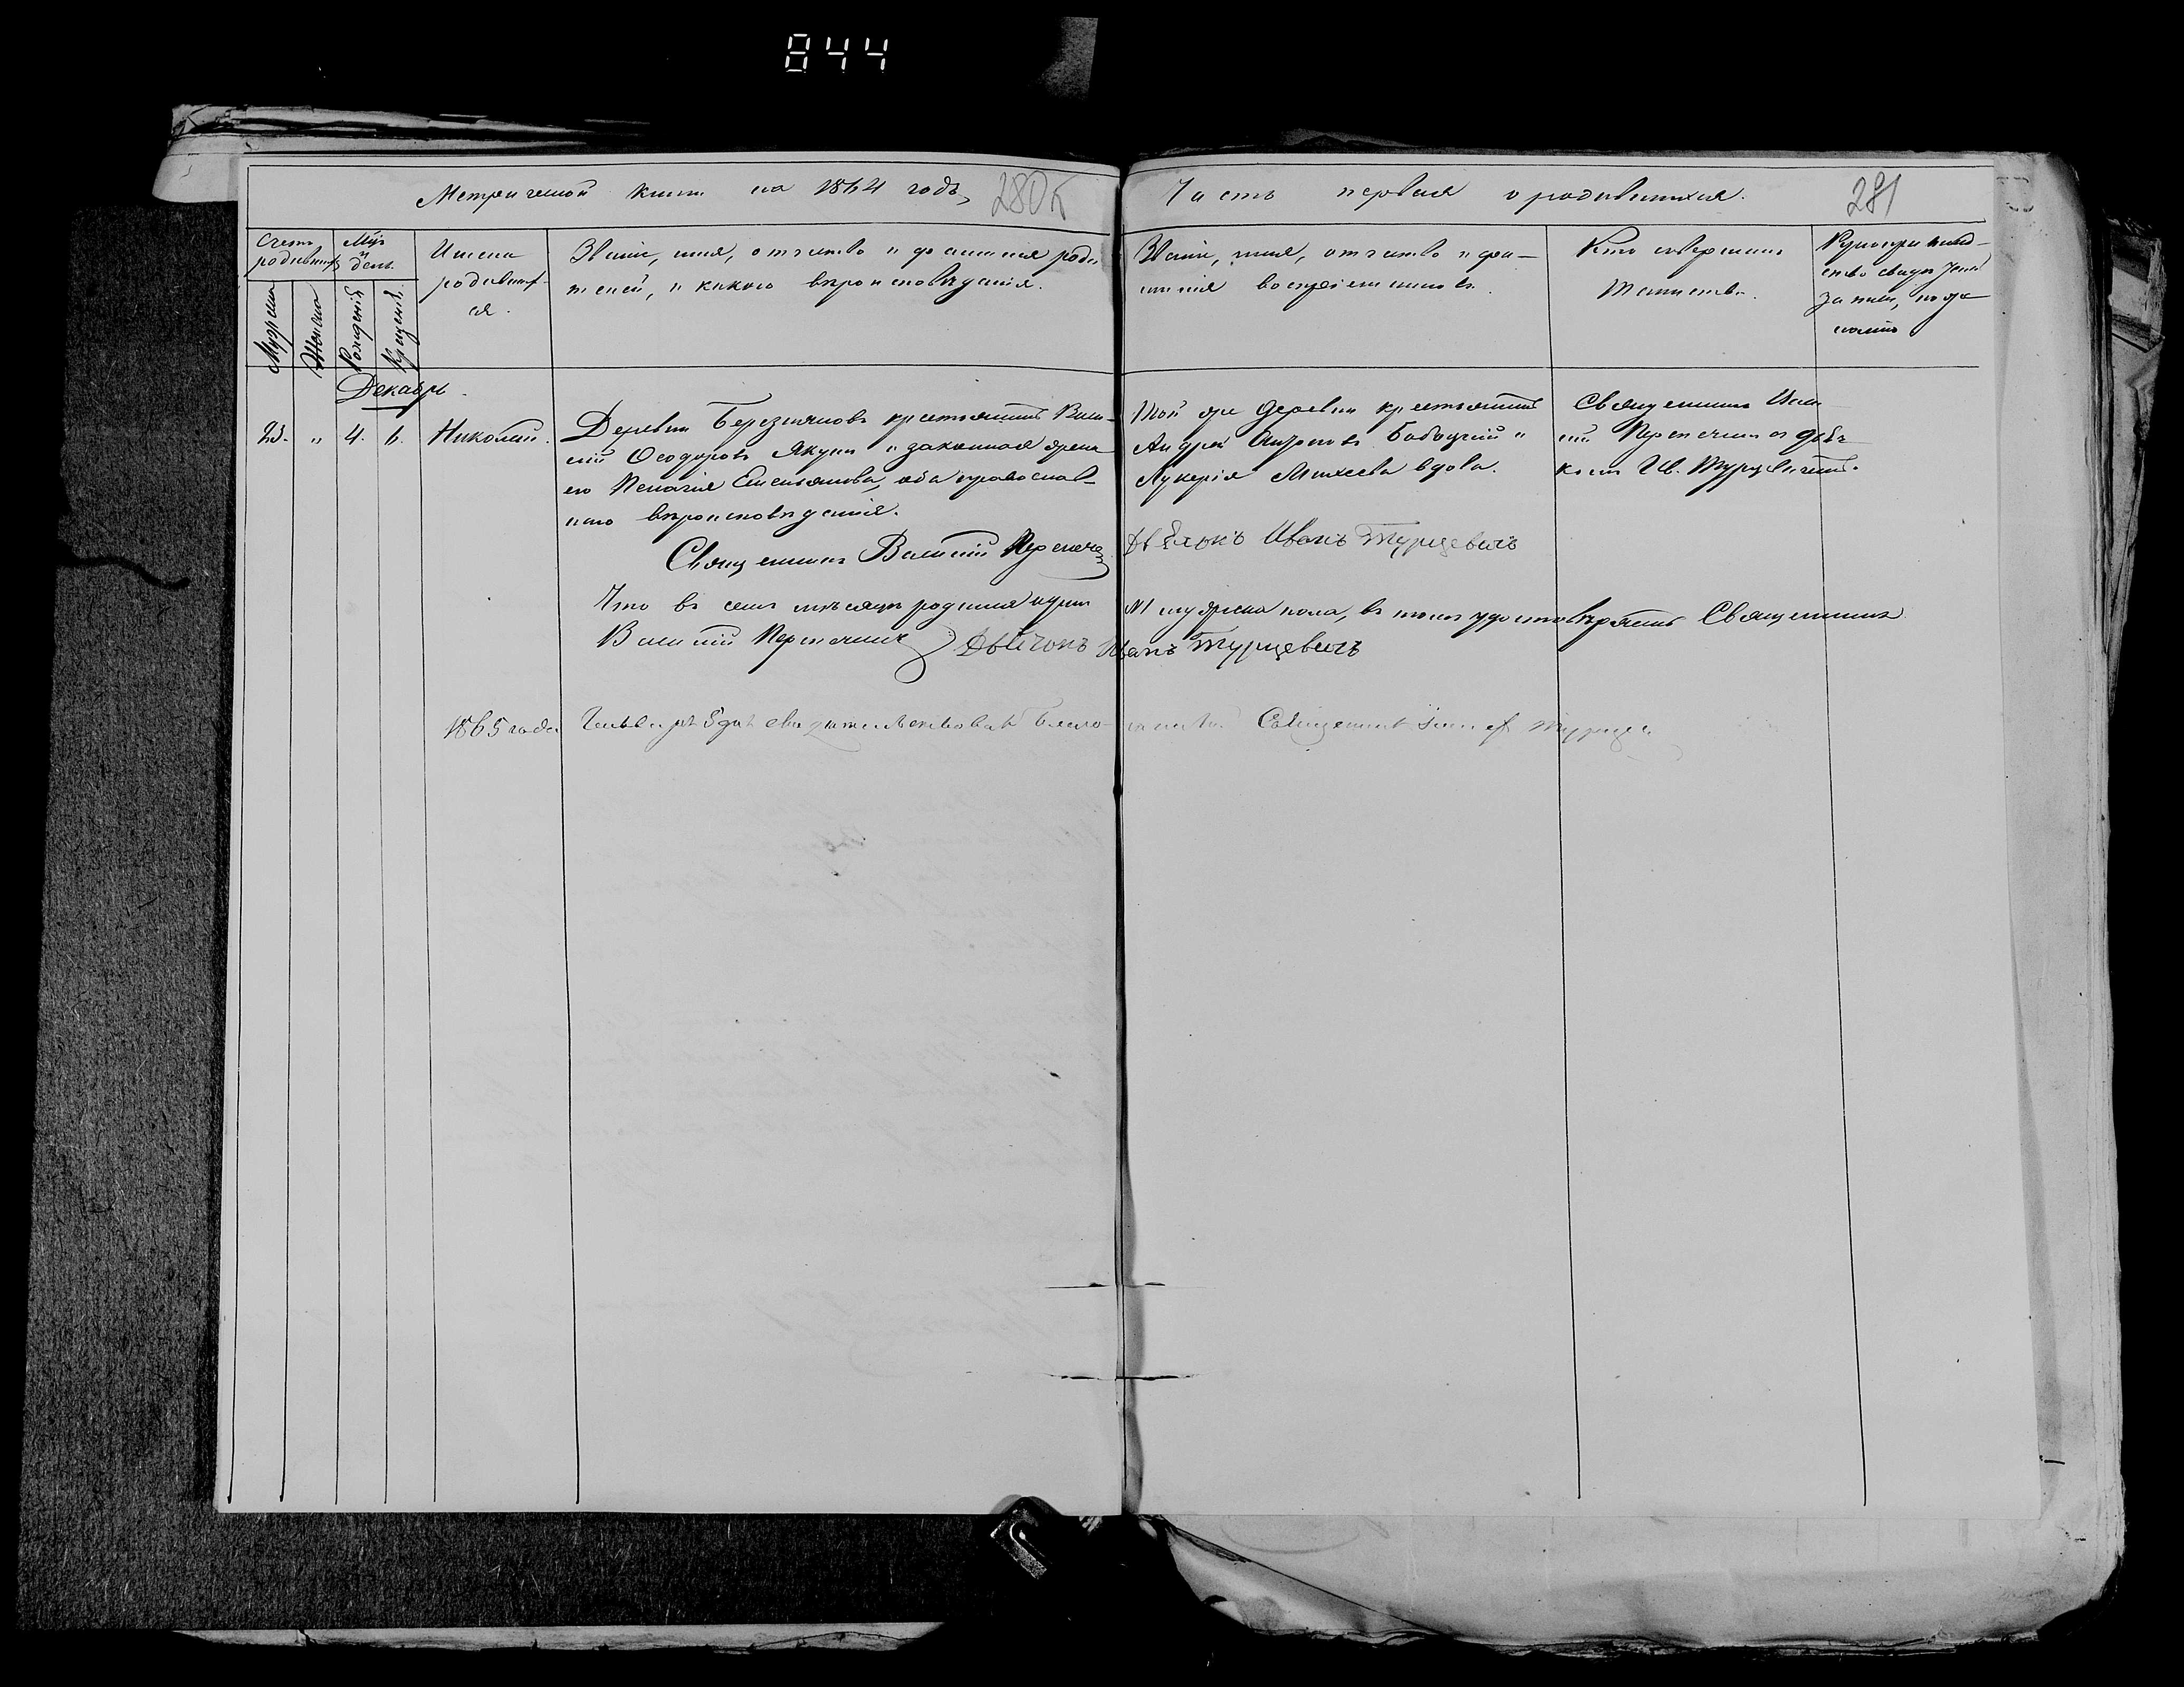 844
Метрической книги на 1864 годъ,
280 б
Часть первая о родившихся.
281
Счетъ родившихся
Мужеска
Женска
Мѣс. и день
Рожденія
Крещенія
Имена
родивших-
ся.
Званіе, имя, отчество и фамилія роди-
телей, и какого вѣроисповѣданія.
Званіе, имя, отчество и фа-
милія воспріемниковъ.
Кто совершалъ
таинство.
Рукоприклад-
ство свидѣтелей
записи, по же-
ланію
Декабрь.
23. " 4. 6. Николай.
Деревни Березняковъ крестьянинъ Васи-
лій Ѳеодоровъ Якуни и законная жена
его Пелагія Емельянова, оба православ-
наго вѣроисповѣданія.
Той же деревни крестьянинъ
Андрей Андреевъ Бабоцкій и
Лукерія Михеева вдова.
Священникъ Васи-
лій Перепечинъ съ дья-
комъ Ив. Турцевичемъ.
Священникъ Василій Перепече
Дьячокъ Иванъ Турцевичъ
Что въ семъ мѣсяцѣ родился одинъ №1 мужеска пола, въ томъ удостовѣряетъ Священникъ
Василій Перепечинъ Дьячокъ Иванъ Турцевичъ
1865 года Генваря 5 дня свидѣтельствовалъ Благо- Священникъ